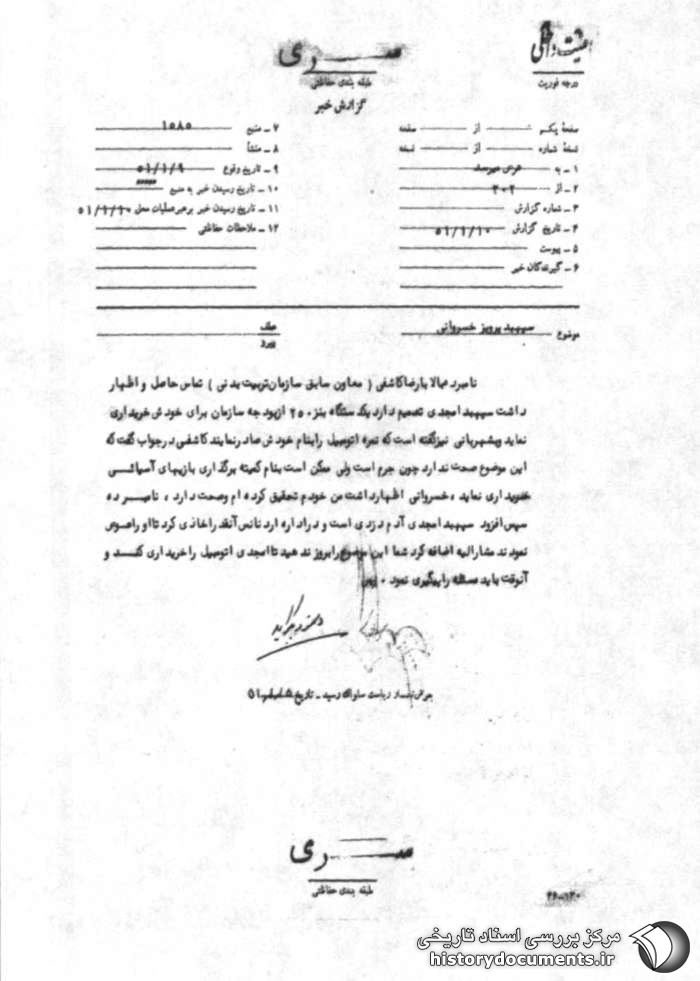 سری
طبقه بندی حفاظتی
درجه فوریت
گزارش خبر
صفحهٔ یکم از صفحه
نسخهٔ شماره از نسخه
۱ ـ به عرض میرساند
۲ ـ از ۳۰۲
۳ ـ شماره گزارش
۴ ـ تاریخ گزارش ۵۱/۱/۱۰
۵ ـ پیوست
۶ ـ گیرندگان خبر
۷ ـ منبع ۱۵۸۵
۸ ـ منشأ
۹ ـ تاریخ وقوع ۵۱/۱/۹
۱۰ ـ تاریخ رسیدن خبر به منبع
۱۱ ـ تاریخ رسیدن خبر برهبر عملیات محل ۵۱/۱/۱۰
۱۲ ـ ملاحظات حفاظتی
موضوع سپهبد پرویز خسروانی
نامبرده بالا با رضا کاشفی ( معاون سابق سازمان تربیت بدنی ) تماس حاصل و اظهار
داشت سپهبد امجدی تصمیم دارد یکدستگاه بنز ۲۵۰ از بودجه سازمان برای خودش خریداری
نماید و بشهربانی نیز گفته است که نمره اتومبیل را بنام خودش صادر نمایند کاشفی در جواب گفت که
این موضوع صحت ندارد چون جرم است ولی ممکن است بنام کمیته برگذاری بازیهای آسیائی
خریداری نماید ، خسروانی اظهار داشت من خودم تحقیق کرده ام و صحت دارد ، نامبرده
سپس افزود سپهبد امجدی آدم دزدی است و در اداره اردنانس آنقدر اخاذی کرد تا او را عوض
نمودند مشارالیه اضافه کرد شما این موضوع را بروز ندهید تا امجدی اتومبیل را خریداری کند و
آنوقت باید مسئله را پیگیری نمود .
بعرض تیمسار ریاست ساواک رسید ـ تاریخ
سری
طبقه بندی حفاظتی
مرکز بررسی اسناد تاریخی
historydocuments.ir